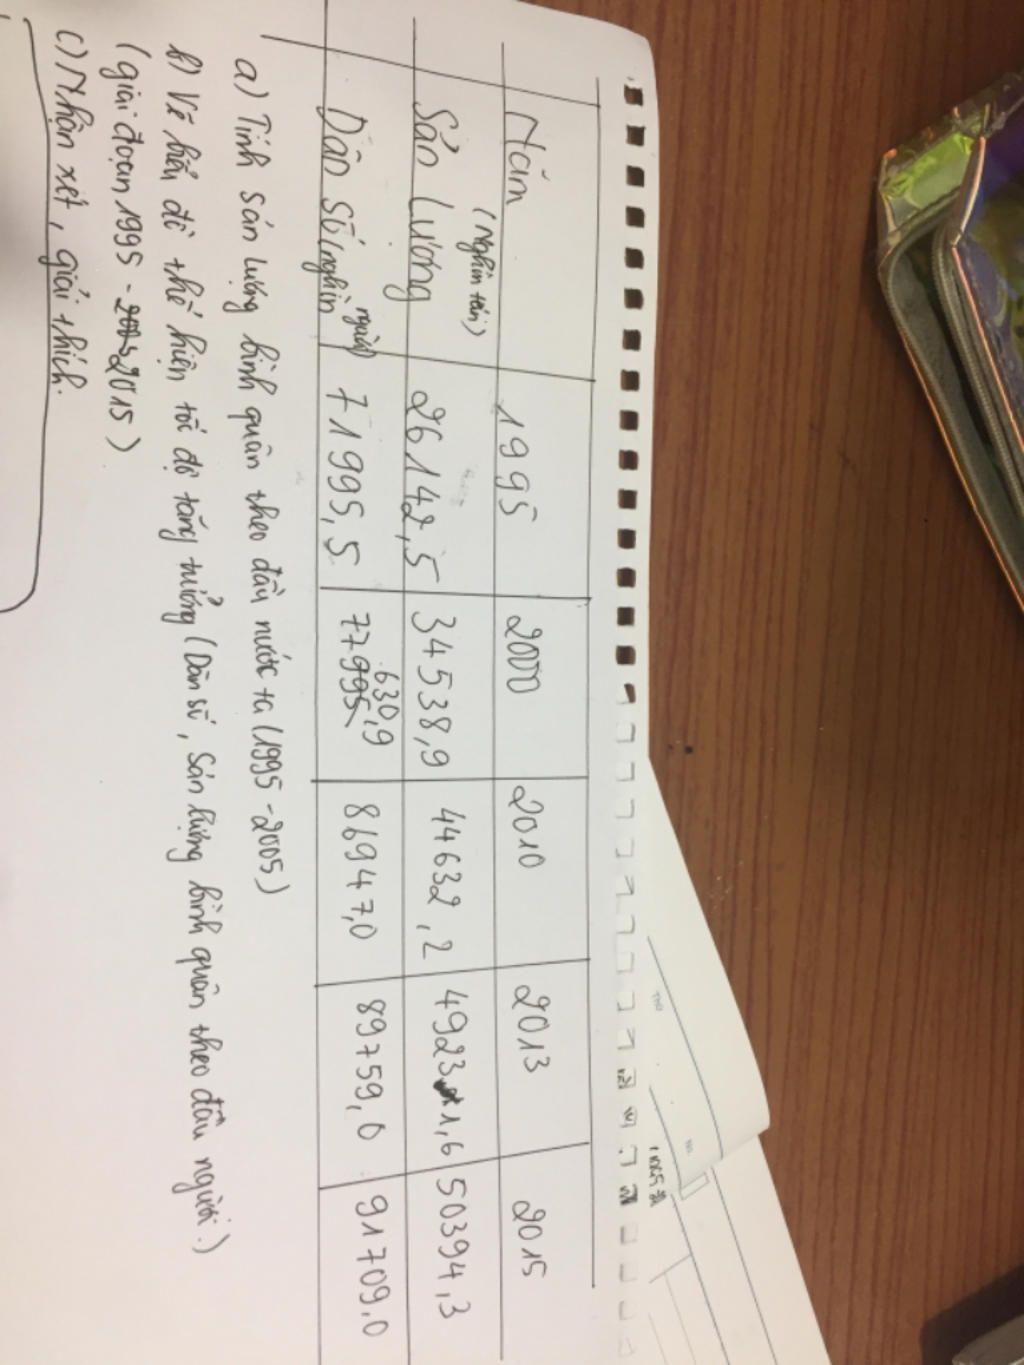 Năm 1995 2000 2010 2013 2015
(Nghìn tấn)
Sản Lương 26142,5 34538,9 44632,2 49231,6 50394,3
người
630,9
Dân số (nghìn 71995,5 77995 86947,0 89759,0 91709,0
a) Tính sản lượng bình quân theo đầu nước ta (1995-2005)
b) Vẽ biểu đồ thể hiện tốc độ tăng trưởng (Dân số, Sản lượng bình quân theo đầu người.)
(giai đoạn 1995 - 2005 2015)
c) Nhận xét, giải thích.